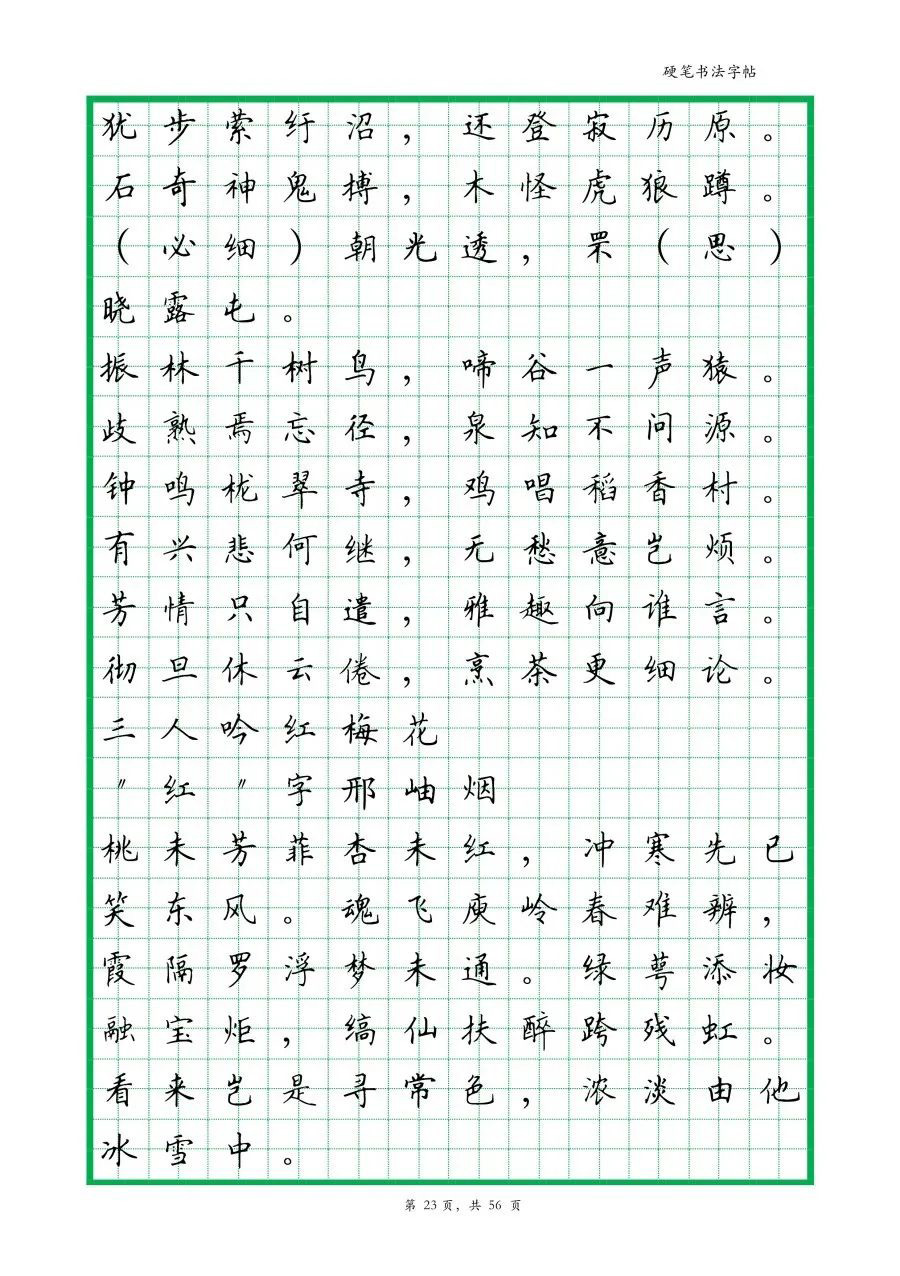 硬笔书法字帖
犹步萦纡沼，还登寂历原。
石奇神鬼搏，木怪虎狼蹲。
（必细）朝光透，罘（思）
晓露屯。
振林千树鸟，啼谷一声猿。
歧熟焉忘径，泉知不问源。
钟鸣栊翠寺，鸡唱稻香村。
有兴悲何继，无愁意岂烦。
芳情只自遣，雅趣向谁言。
彻旦休云倦，烹茶更细论。
三人吟红梅花
"红"字邢岫烟
桃未芳菲杏未红，冲寒先已
笑东风。魂飞庾岭春难辨，
霞隔罗浮梦未通。绿萼添妆
融宝炬，缟仙扶醉跨残虹。
看来岂是寻常色，浓淡由他
冰雪中。
第 23 页，共 56 页